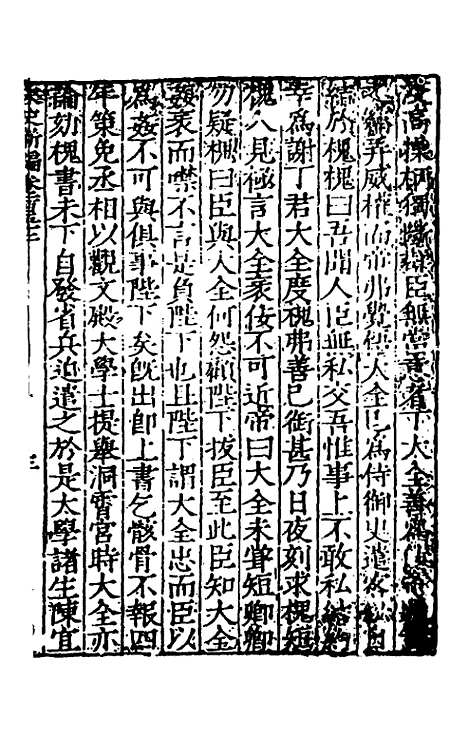 深高操柄獨擅臣無當意者丁大全善為
竊弄威權而帝弗覺悟大全已為侍御史遣客私自
結於槐槐曰吾聞人臣無私交吾惟事上不敢私結約
幸為謝丁君大全度槐弗善己銜甚乃日夜刻求槐短
槐入見極言大全衺佞不可近帝曰大全未甞短卿卿
勿疑槐曰臣與大全何怨顧陛下拔臣至此臣知大全
姦衺而噤不言是負陛下也且陛下謂大全忠而臣以
為姦不可與俱事陛下矣旣出即上書乞骸骨不報四
年策免丞相以觀文殿大學士提舉洞霄宮時大全亦
論劾槐書未下自發省兵迫遣之於是太學諸生陳宜
宋史新編卷
三